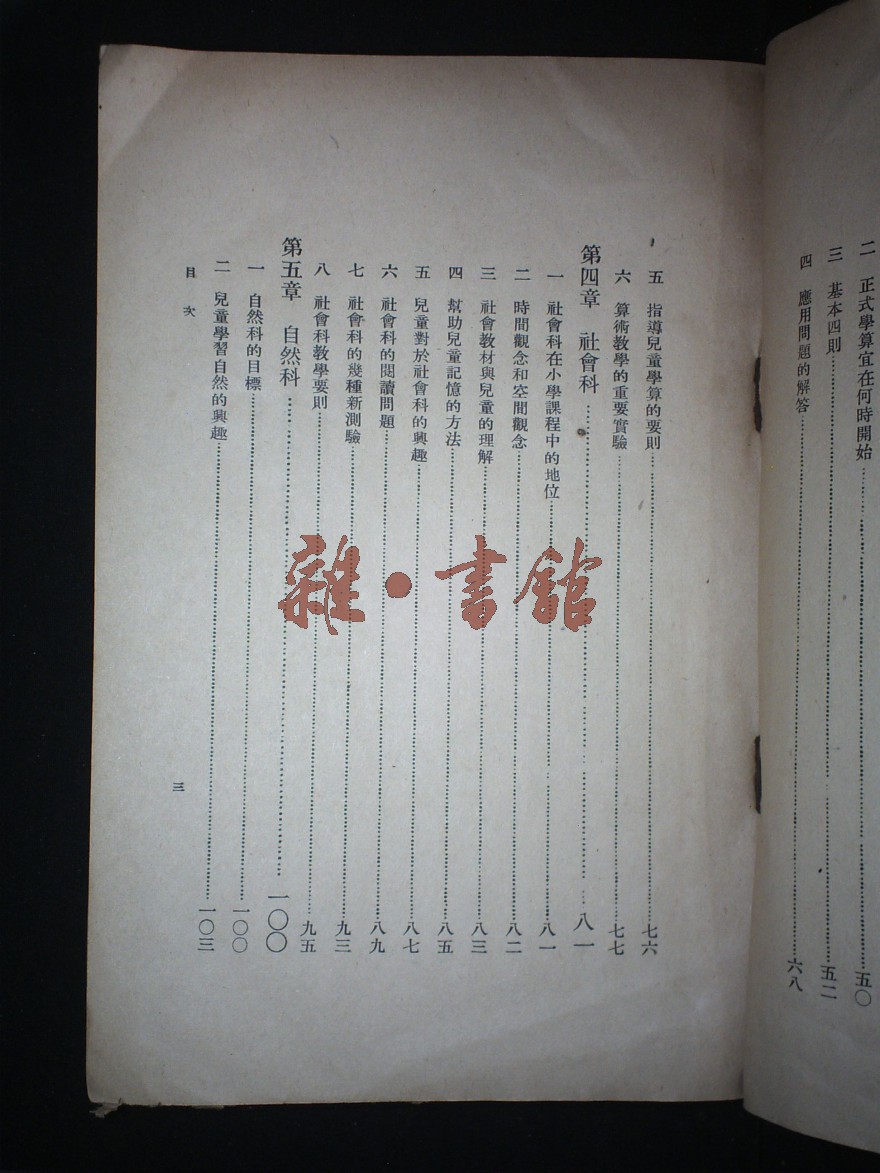 二　正式學算宜在何時開始……五〇
三　基本四則……五二
四　應用問題的解答……六八
五　指導兒童學算的要則……七六
六　算術教學的重要實驗……七七
第四章　社會科……八一
一　社會科在小學課程中的地位……八一
二　時間觀念和空間觀念……八二
三　社會教材與兒童的理解……八三
四　幫助兒童記憶的方法……八五
五　兒童對於社會科的興趣……八七
六　社會科的閱讀問題……八九
七　社會科的幾種新測驗……九三
八　社會科教學要則……九五
第五章　自然科……一〇〇
一　自然科的目標……一〇〇
二　兒童學習自然的興趣……一〇三
目次
三
雜·書館